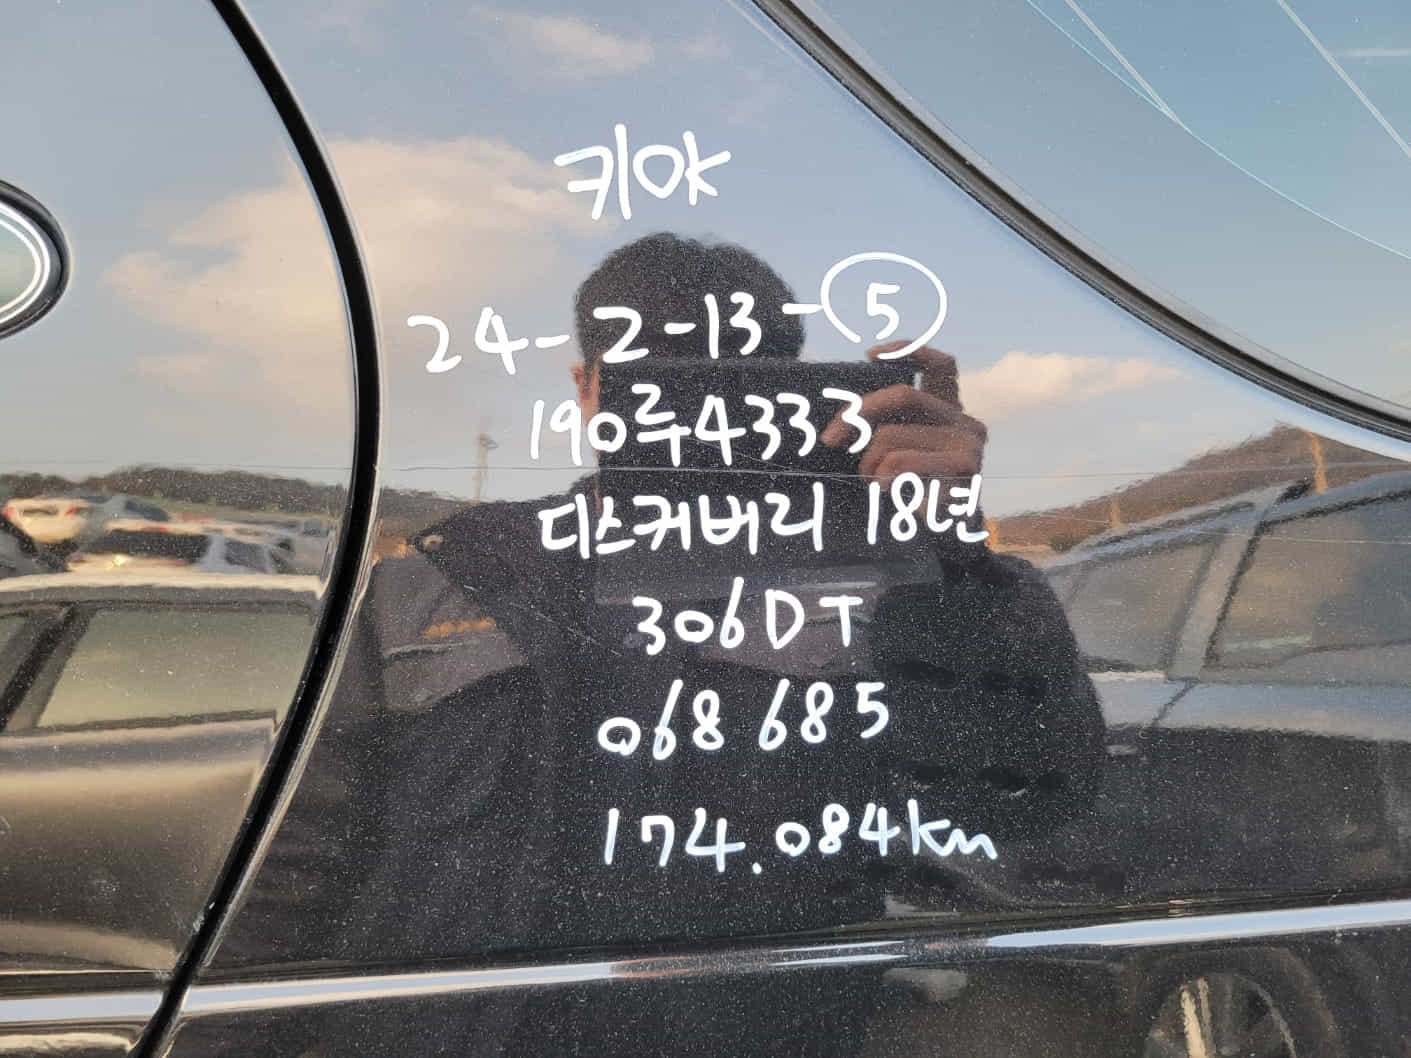 키야
24-2-13-⑤
190루4333
디스커버리 18년
306DT
068685
174.084km